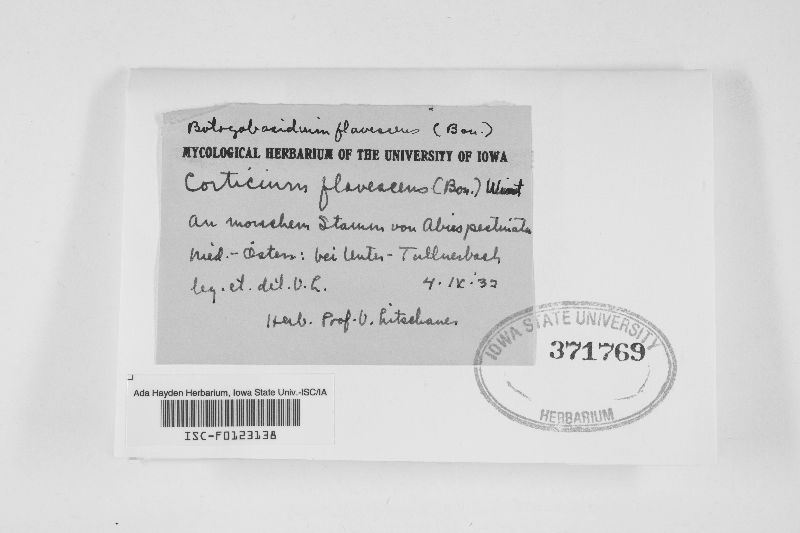 Botryobasidium flavescens (Bon.)
MYCOLOGICAL HERBARIUM OF THE UNIVERSITY OF IOWA
Corticium flavescens (Bon.) Wint
An morschem Stamm von Abies pectinata
Nied.-Österr: bei Unter-Tullnerbach
leg. et. det. V. L. 4. IX. 32
Herb. Prof. V. Litschauer
IOWA STATE UNIVERSITY
371769
HERBARIUM
Ada Hayden Herbarium, Iowa State Univ.-ISC/IA
ISC-F0123138